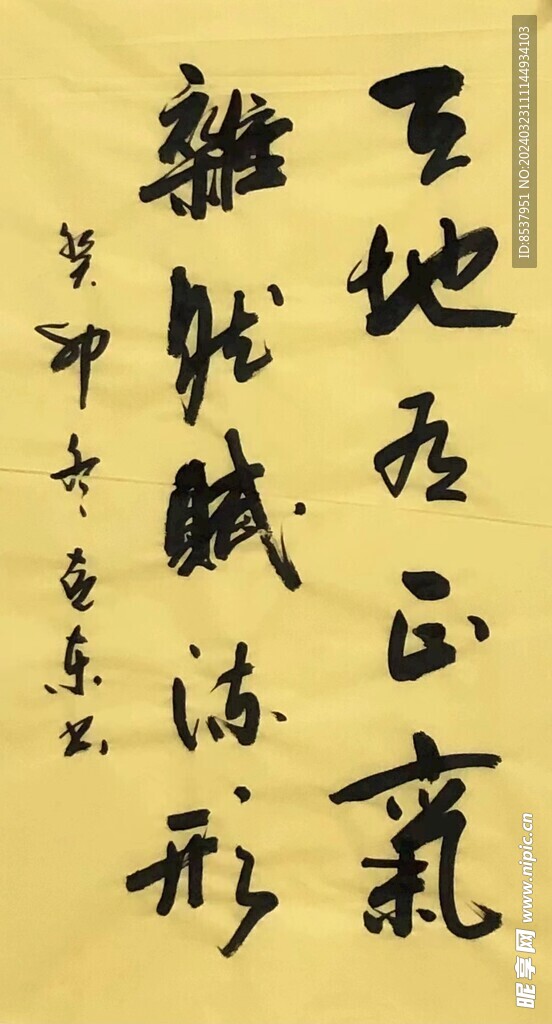 天地有正氣
雜然賦流形
癸卯冬克東书
ID:8537951 NO:20240323111144934103
昵享网 www.nipic.cn